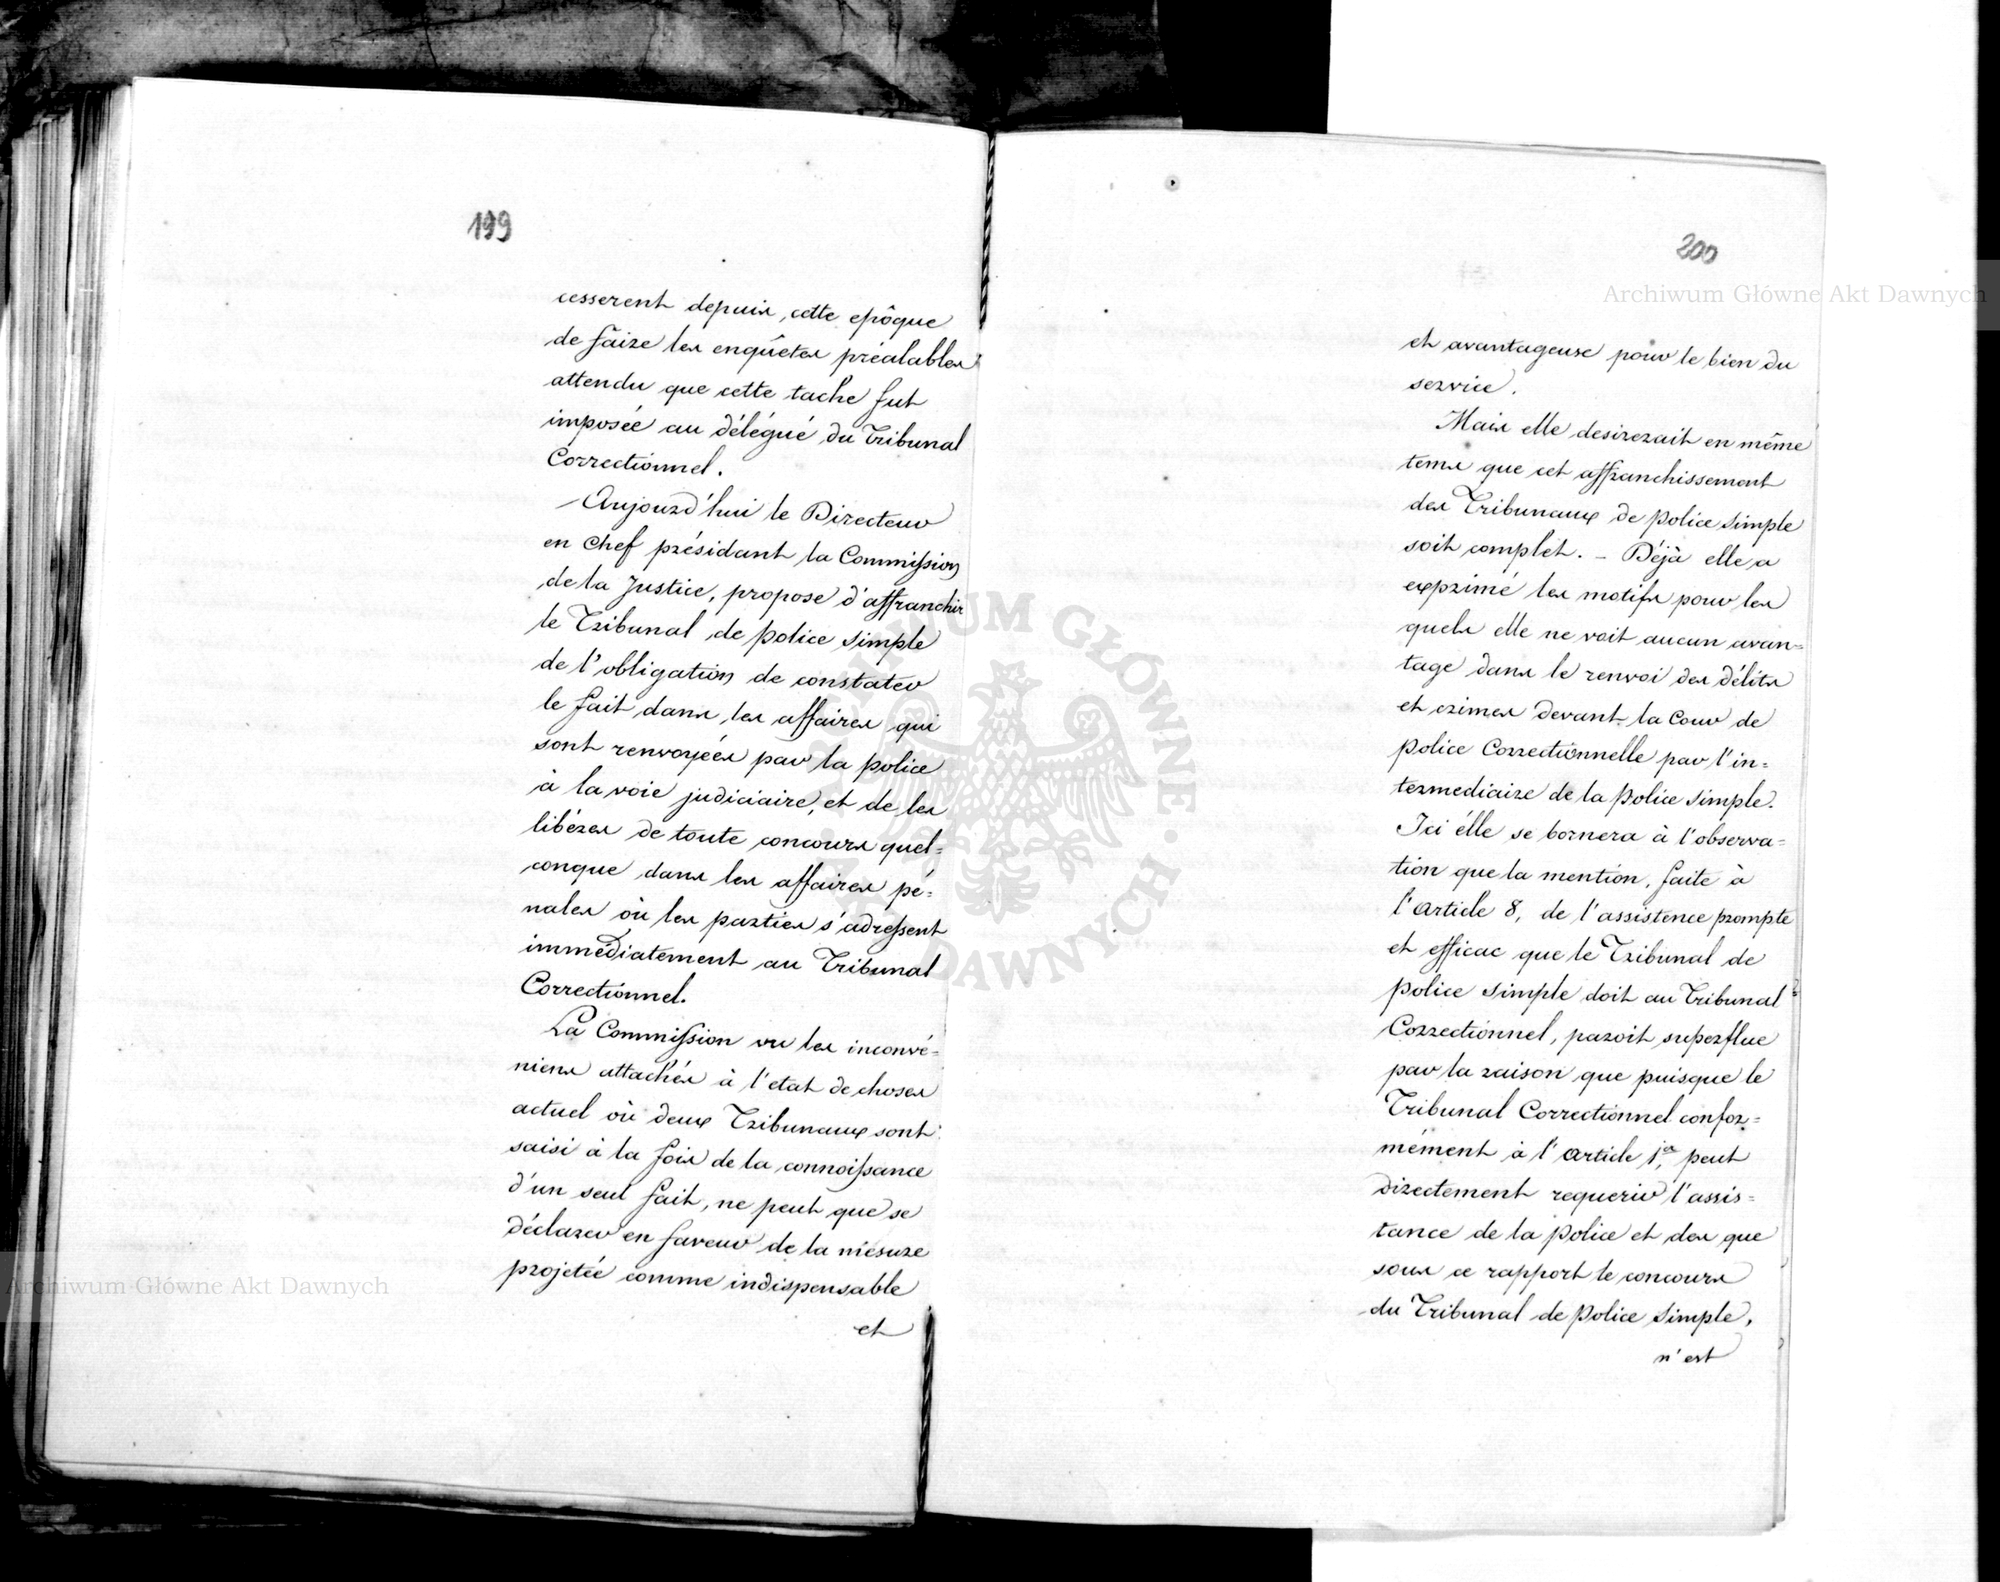 199
cesserent depuis cette epôque
de faire les enquêtes préalables
attendu que cette tache fut
imposée au délégué du Tribunal
Correctionnel.
Aujourd'hui le Directeur
en Chef présidant la Commission
de la Justice, propose d'affranchir
le Tribunal de police simple
de l'obligation de constater
le fait dans les affaires qui
sont renvoyées par la police
à la voie judiciaire, et de les
libérer de toute concours quel=
conque dans les affaires pé=
nales où les parties s'adressent
immédiatement au Tribunal
Correctionnel.
La Commission vu les inconvé=
niens attachés à l'etat de choses
actuel où deux Tribunaux sont
saisi à la fois de la connoissance
d'un seul fait, ne peut que se
déclarer en faveur de la mésure
projetée comme indispensable
et
200
et avantageuse pour le bien du
service.
Mais elle desirerait en même
tems que cet affranchissement
des Tribunaux de police simple
soit complèt. - Déjà elle a
exprimé les motifs pour les
quels elle ne voit aucun avan=
tage dans le renvoi des délits
et crimes devant la Cour de
police Correctionnelle par l'in=
termediaire de la police simple.
Ici elle se bornera à l'observa=
tion que la mention, faite à
l'article 8, de l'assistence prompte
et efficac que le Tribunal de
police simple doit au Tribunal
Correctionnel, paroit superflue
par la raison que puisque le
Tribunal Correctionnel confor=
mément à l'article 1er, peut
directement requerir l'assis=
tance de la police et des que
sous ce rapport le concours
du Tribunal de police simple,
n'est
Archiwum Główne Akt Dawnych
Archiwum Główne Akt Dawnych
ARCHIWUM GŁÓWNE AKT DAWNYCH